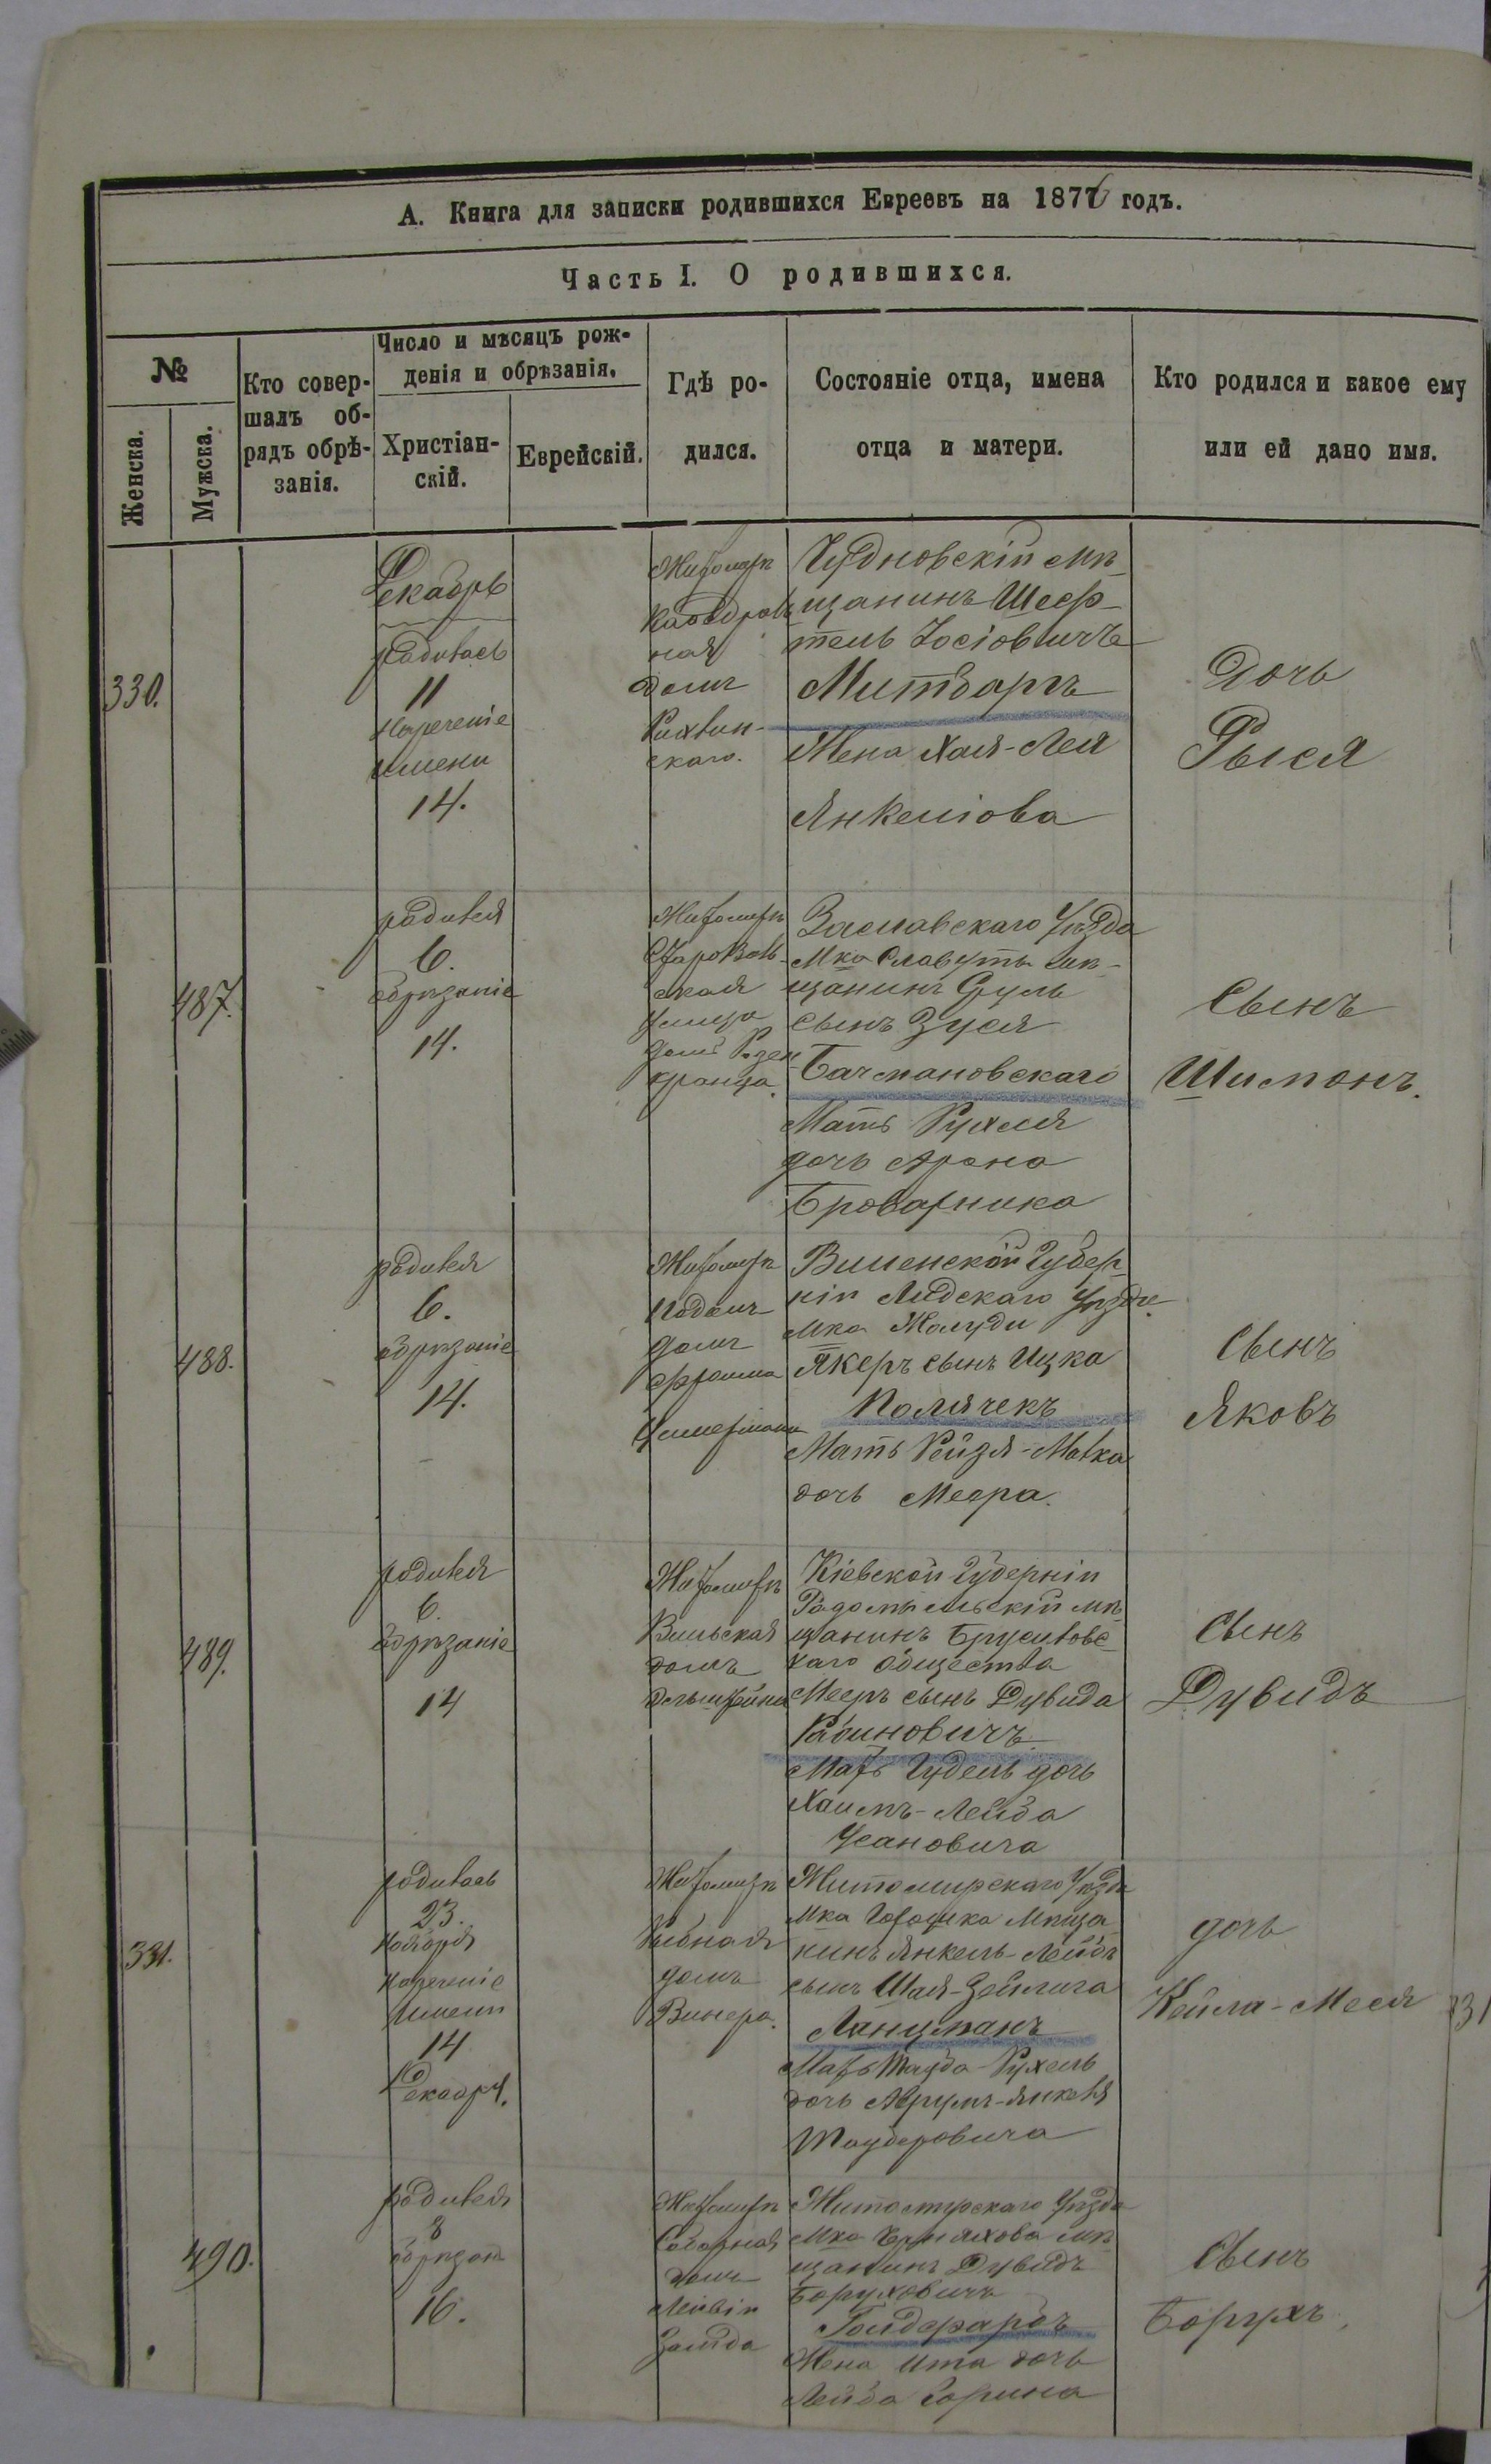 А. Книга для записки родившихся Евреевъ на 1876 годъ.
Часть I. О родившихся.
№
Женска.
Мужска.
Кто совер-
шалъ об-
рядъ обрѣ-
занія.
Число и мѣсяцъ рож-
денія и обрѣзанія.
Христіан-
скій.
Еврейскій.
Гдѣ ро-
дился.
Состояніе отца, имена
отца и матери.
Кто родился и какое ему
или ей дано имя.
330.
Декабрь
родилась
11
Нареченіе
имени
14.
Житомиръ
Каѳедраль
ная
домъ
Рихвин-
скаго.
Чудновскій мѣ
щанинъ Шеф-
тель Іосіовичъ
Митбаргъ
Жена Хая-Лея
Янкеліова
Дочь
Рыся
487.
родился
6.
обрѣзаніе
14.
Житомиръ
Староволь-
ская
улица
домъ Розен
кранца.
Заславскаго Уѣзда
Мка Славуты мѣ-
щанинъ Сруль
сынъ Зуся
Бачмановскаго
Мать Рухля
дочь Арона
Броварника
Сынъ
Шимонъ.
488.
родился
6.
обрѣзаніе
14.
Житомиръ
Подолъ
домъ
Фроима
Цимермана
Виленской Губер-
ніи Лидскаго Уѣзда
мка Жолуди
Якеръ сынъ Ицка
Полячекъ
Мать Рейзя-Малка
дочь Меера.
Сынъ
Яковъ
489.
родился
6.
Обрѣзаніе
14
Житомиръ
Вильская
домъ
Кіевской Губерніи
Радомысльскій мѣ
щанинъ Брусиловс
каго общества
Мееръ сынъ Дувида
Рабиновичъ.
Мать Гудель дочь
Хаимъ-Лейба
Усановича
Сынъ
Дувидъ
331.
родилась
23.
Ноября
Нареченіе
Имени
14
Декабря.
Житомиръ
Рыбная
домъ
Винера.
Житомирскаго Уѣзда
Мка Горошка Мѣща
нинъ Янкель-Лейбъ
сынъ Шая-Зейлига
Ланцманъ
Мать Тауба-Рухель
дочь Аврумъ-Янкеля
Тауберовича
дочь
Кейла-Меся
331
490.
родился
8
обрѣзан
16.
Житомиръ
Соборная
домъ
Зайда
Житомирскаго Уѣзда
Мка Черняхова мѣ
щанинъ Дувидъ
Боруховичъ
Гольдфарбъ
Жена Ита дочь
Лейба Горина
Сынъ
Борухъ.